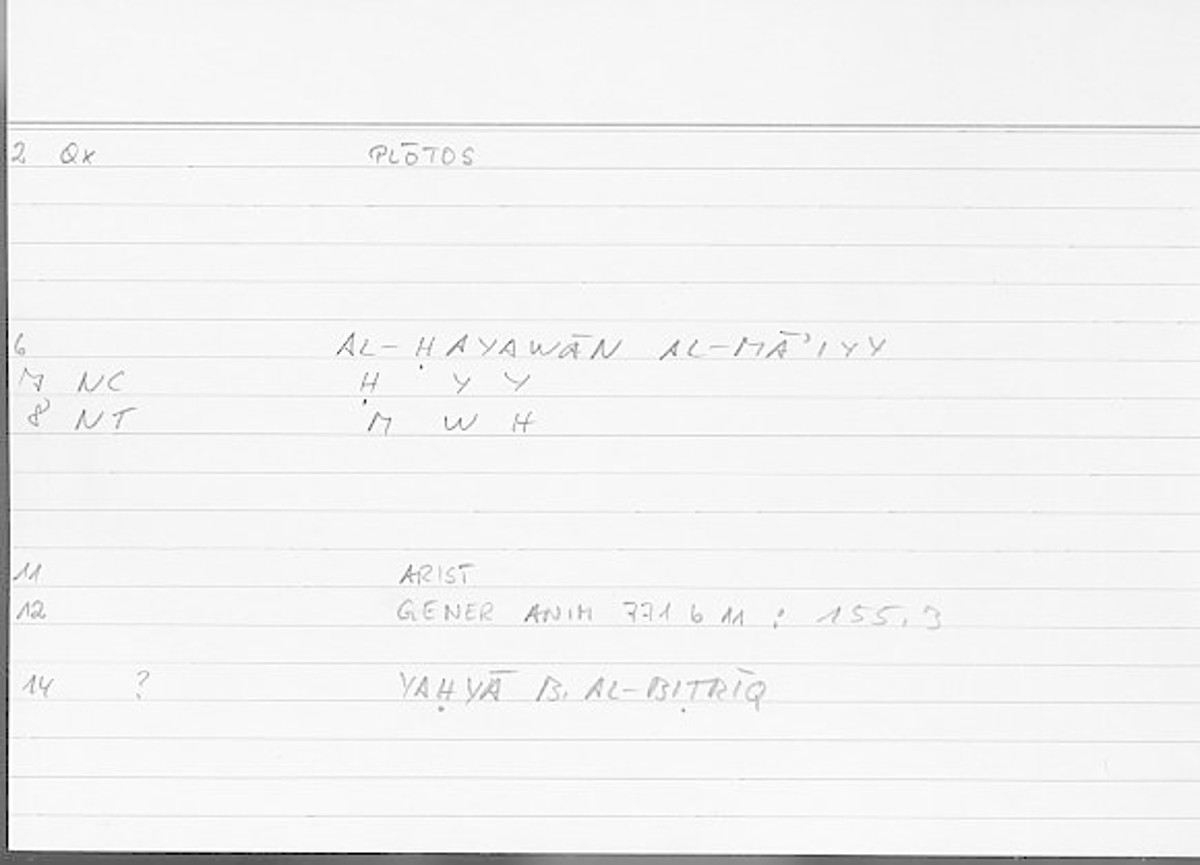 2 Qx PLŌTOS
6 AL-ḤAYAWĀN AL-MĀʾIYY
7 NC Ḥ Y Y
8 NT M W H
11 ARIST
12 GENER ANIM 771 b 11 : 155.3
14 ? YAḤYĀ B. AL-BIṬRĪQ